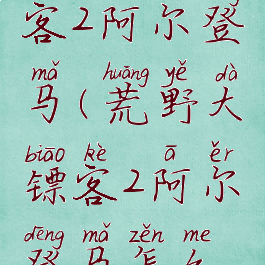 客2阿尔登
mǎ huāng yě dà
马(荒野大
biāo kè ā ěr
镖客2阿尔
dēng mǎ zěn me
登马怎么